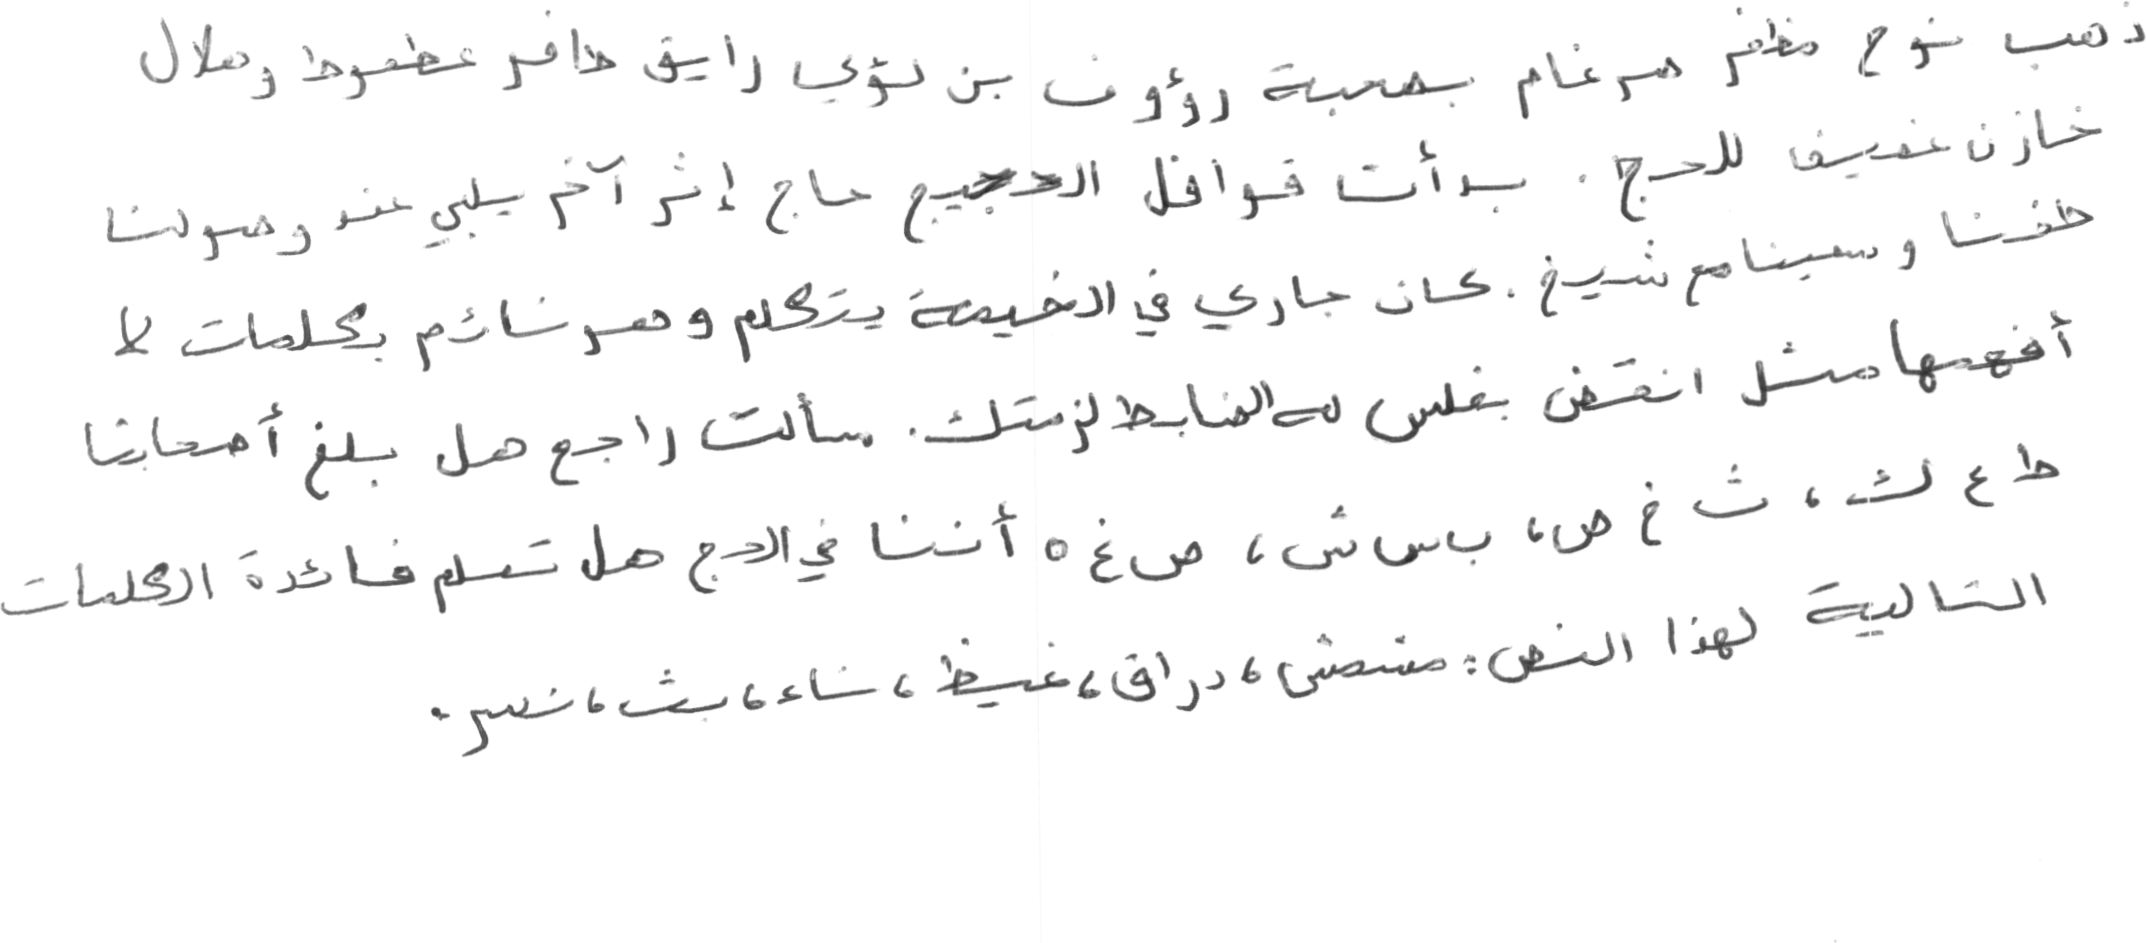 ذهب نوح مظفر ضرغام بصحبة رؤوف بن لؤي رايق ظافر عطعوط وهلال
خازن غضيف للحج. بدأت قوافل الحجيج حاج إثر آخر يلبي عند وصولنا
طفنا وسعينا مع شيخ. كان جاري في الخيمة يتكلم وهو نائم بكلمات لا
أفهمها مثل انقض بغلس له الضابط لزمتك. سألت راجح هل بلغ أصحابنا
ط ع ك، ث خ ص، ب س ش، ص غ ه أننا في الحج هل تعلم فائدة الكلمات
التالية لهذا النص: مشمش، دراق، غيظ، شاء، بث، نسر.